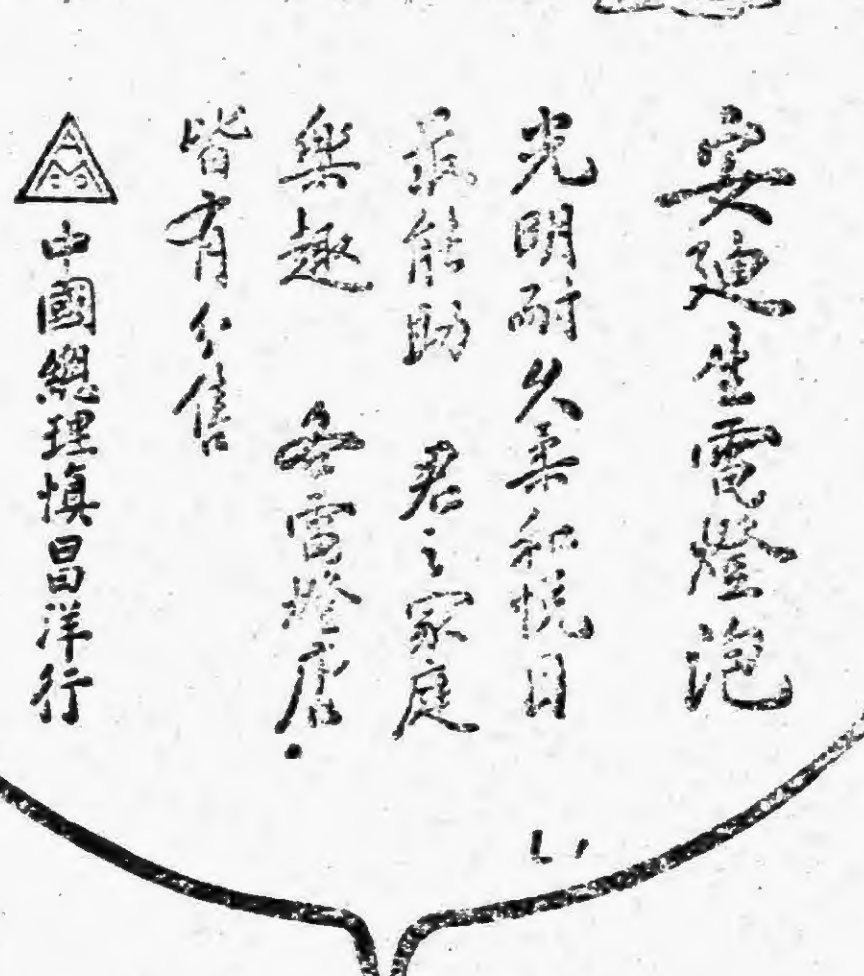 安廸生電燈泡
光明耐久柔和悅目
最能助 君之家庭
樂趣 各電燈店
皆有分售
中國總理慎昌洋行